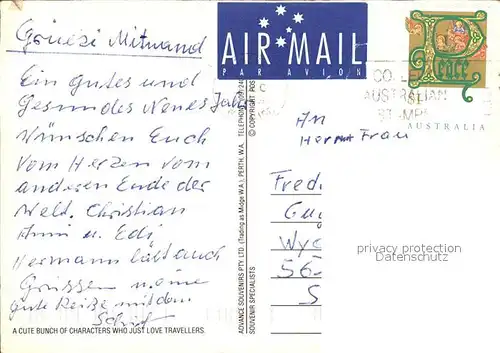 Grüezi Mitnand
Ein gutes und
Gesundes Neues Jahr
Wünschen Euch
Vom Herzen vom
anderen Ende der
Welt. Christian
Anni u. Edi
Hermann läst auch
Grüssen
gute Reise mit dem
Schif
A CUTE BUNCH OF CHARACTERS WHO JUST LOVE TRAVELLERS.
ADVANCE SOUVENIRS PTY. LTD. (Trading as Midge W.A.), PERTH, W.A. TELEPHONE
SOUVENIR SPECIALISTS
© COPYRIGHT
AIR MAIL
PAR AVION
Peace
AUSTRALIA
COLLECT
AUSTRALIAN
STAMPS
An
Herr + Frau
Fred
Gu
Wy
56
S
privacy protection
Datenschutz